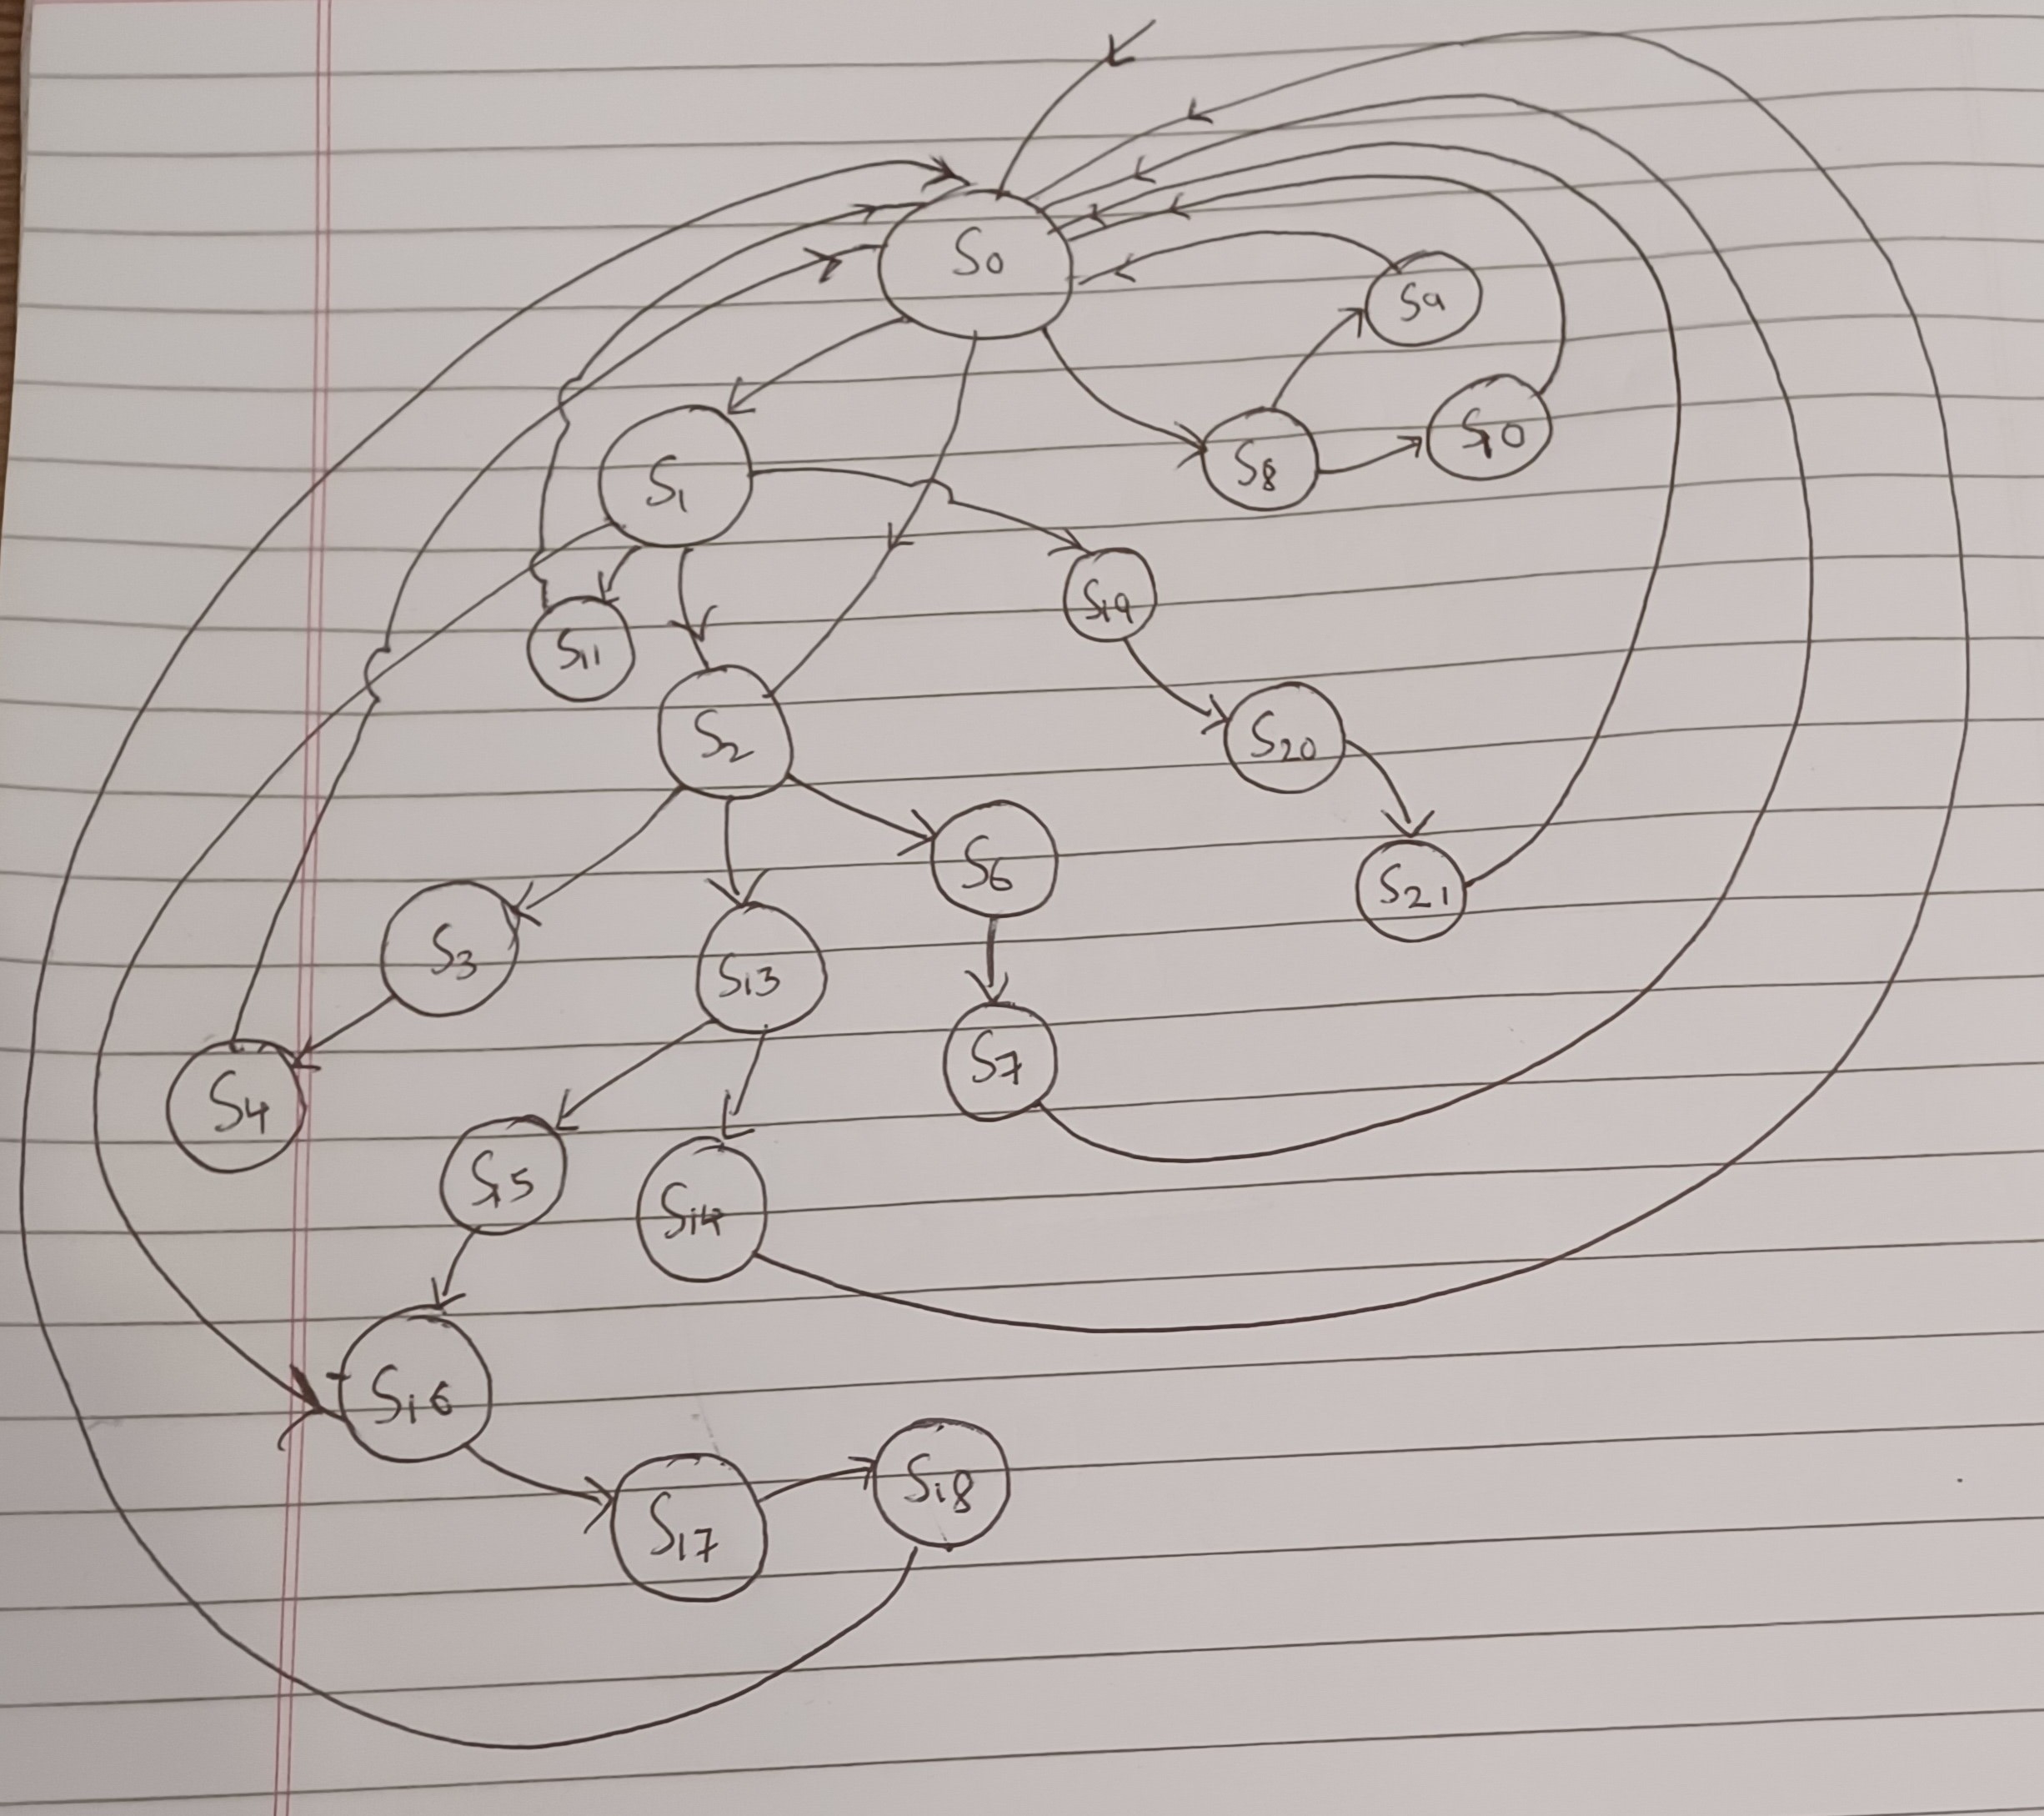 S0
S9
S10
S8
S1
S19
S11
S2
S20
S6
S21
S3
S13
S7
S4
S15
S14
S16
S18
S17